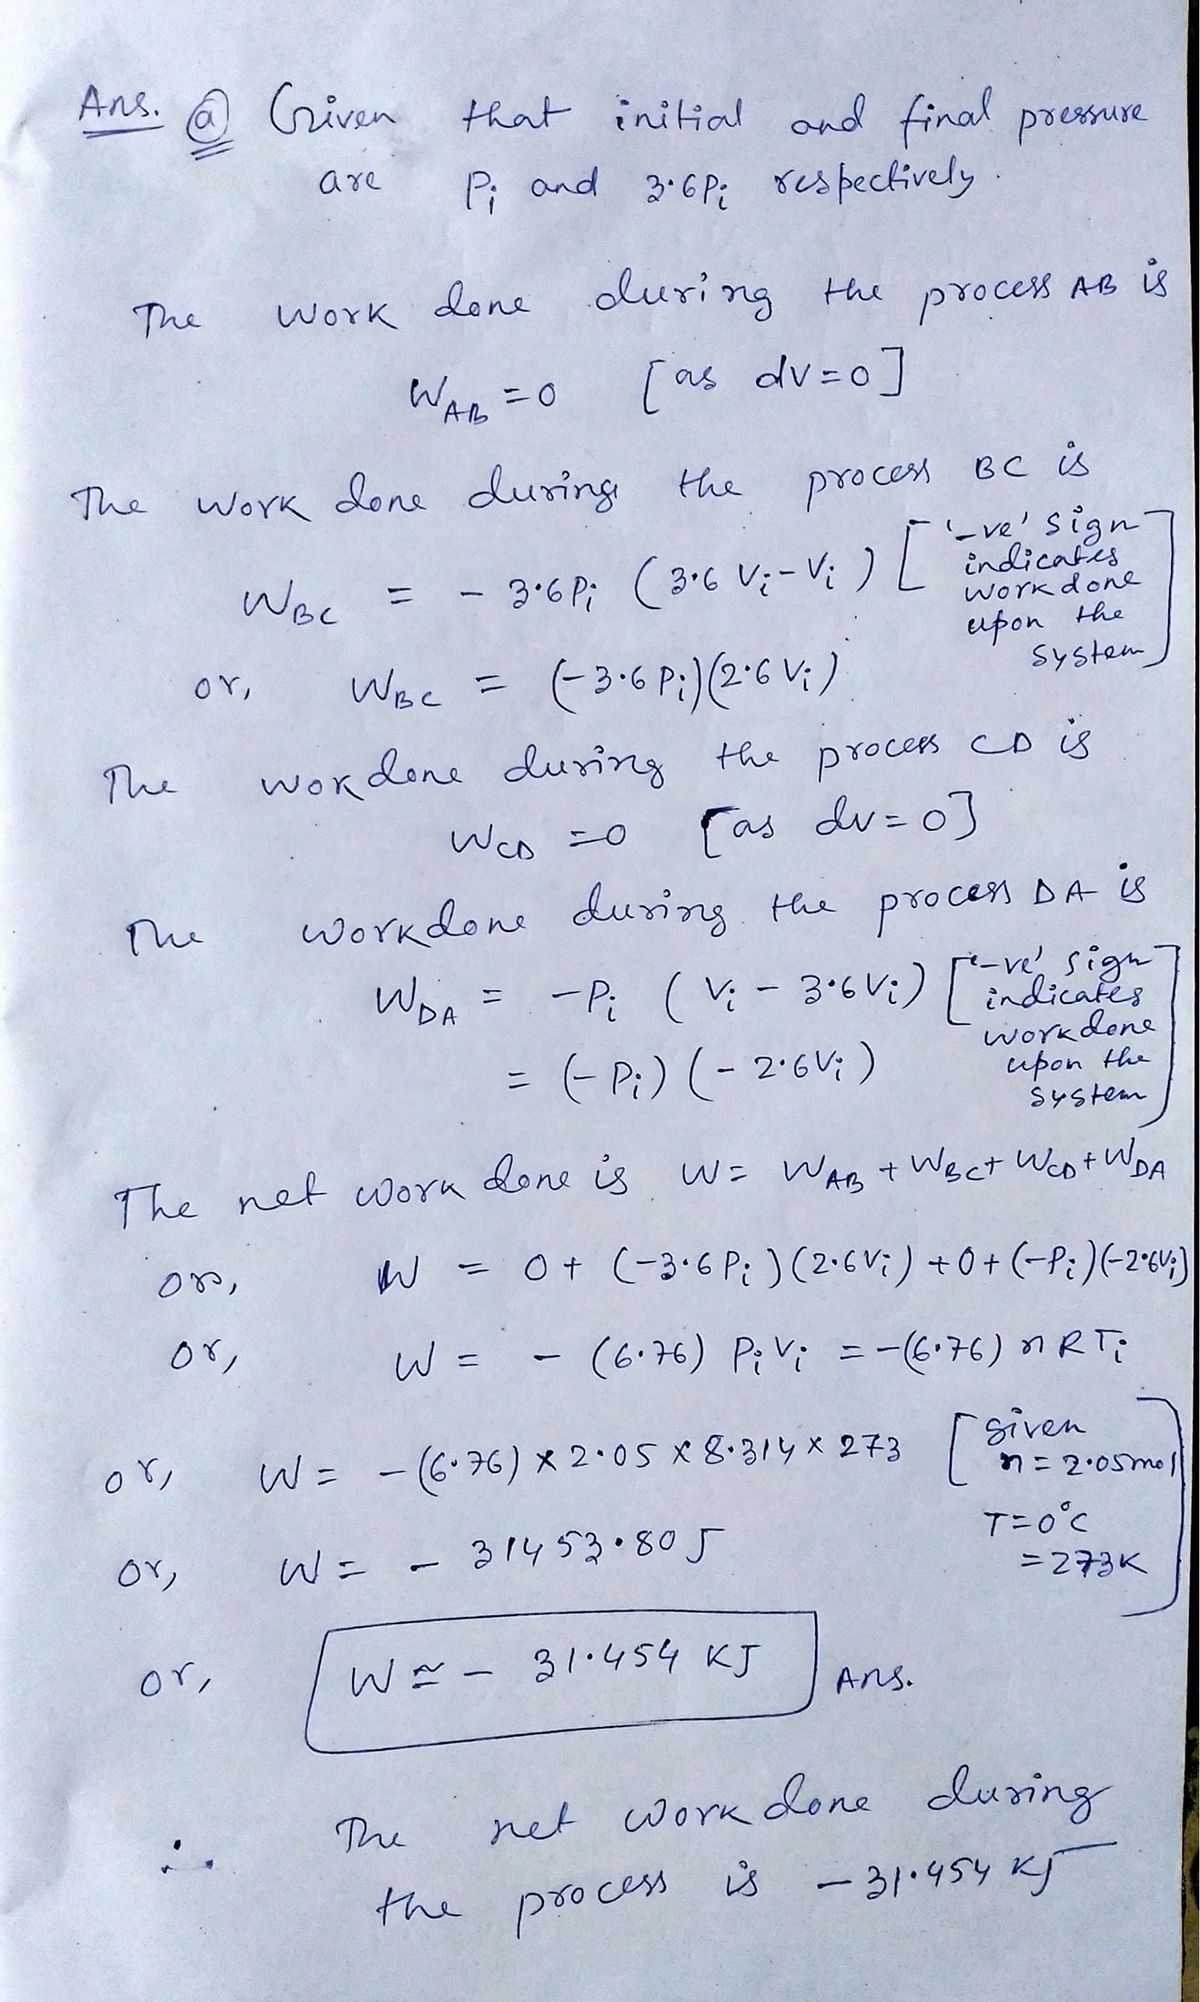 Ans. (a) Given that initial and final pressure
are Pi and 3.6Pi respectively.
The work done during the process AB is
W_AB = 0 [as dv=0]
The work done during the process BC is
W_BC = - 3.6Pi (3.6 Vi - Vi) ['-ve' sign indicates work done upon the system]
or, W_BC = (-3.6 Pi)(2.6 Vi)
The wokdone during the process CD is
W_CD = 0 [as dv=0]
The workdone during the process DA is
W_DA = -Pi (Vi - 3.6Vi) ['-ve' sign indicates workdone upon the system]
= (-Pi) (-2.6Vi)
The net work done is W = W_AB + W_BC + W_CD + W_DA
or, W = 0 + (-3.6 Pi)(2.6Vi) + 0 + (-Pi)(-2.6Vi)
or, W = - (6.76) PiVi = -(6.76) nRTi
or, W = -(6.76) × 2.05 × 8.314 × 273 [given n = 2.05mol
T = 0°C
= 273K]
or, W = - 31453.80 J
or, W ≃ - 31.454 KJ Ans.
∴ The net work done during
the process is -31.454 KJ